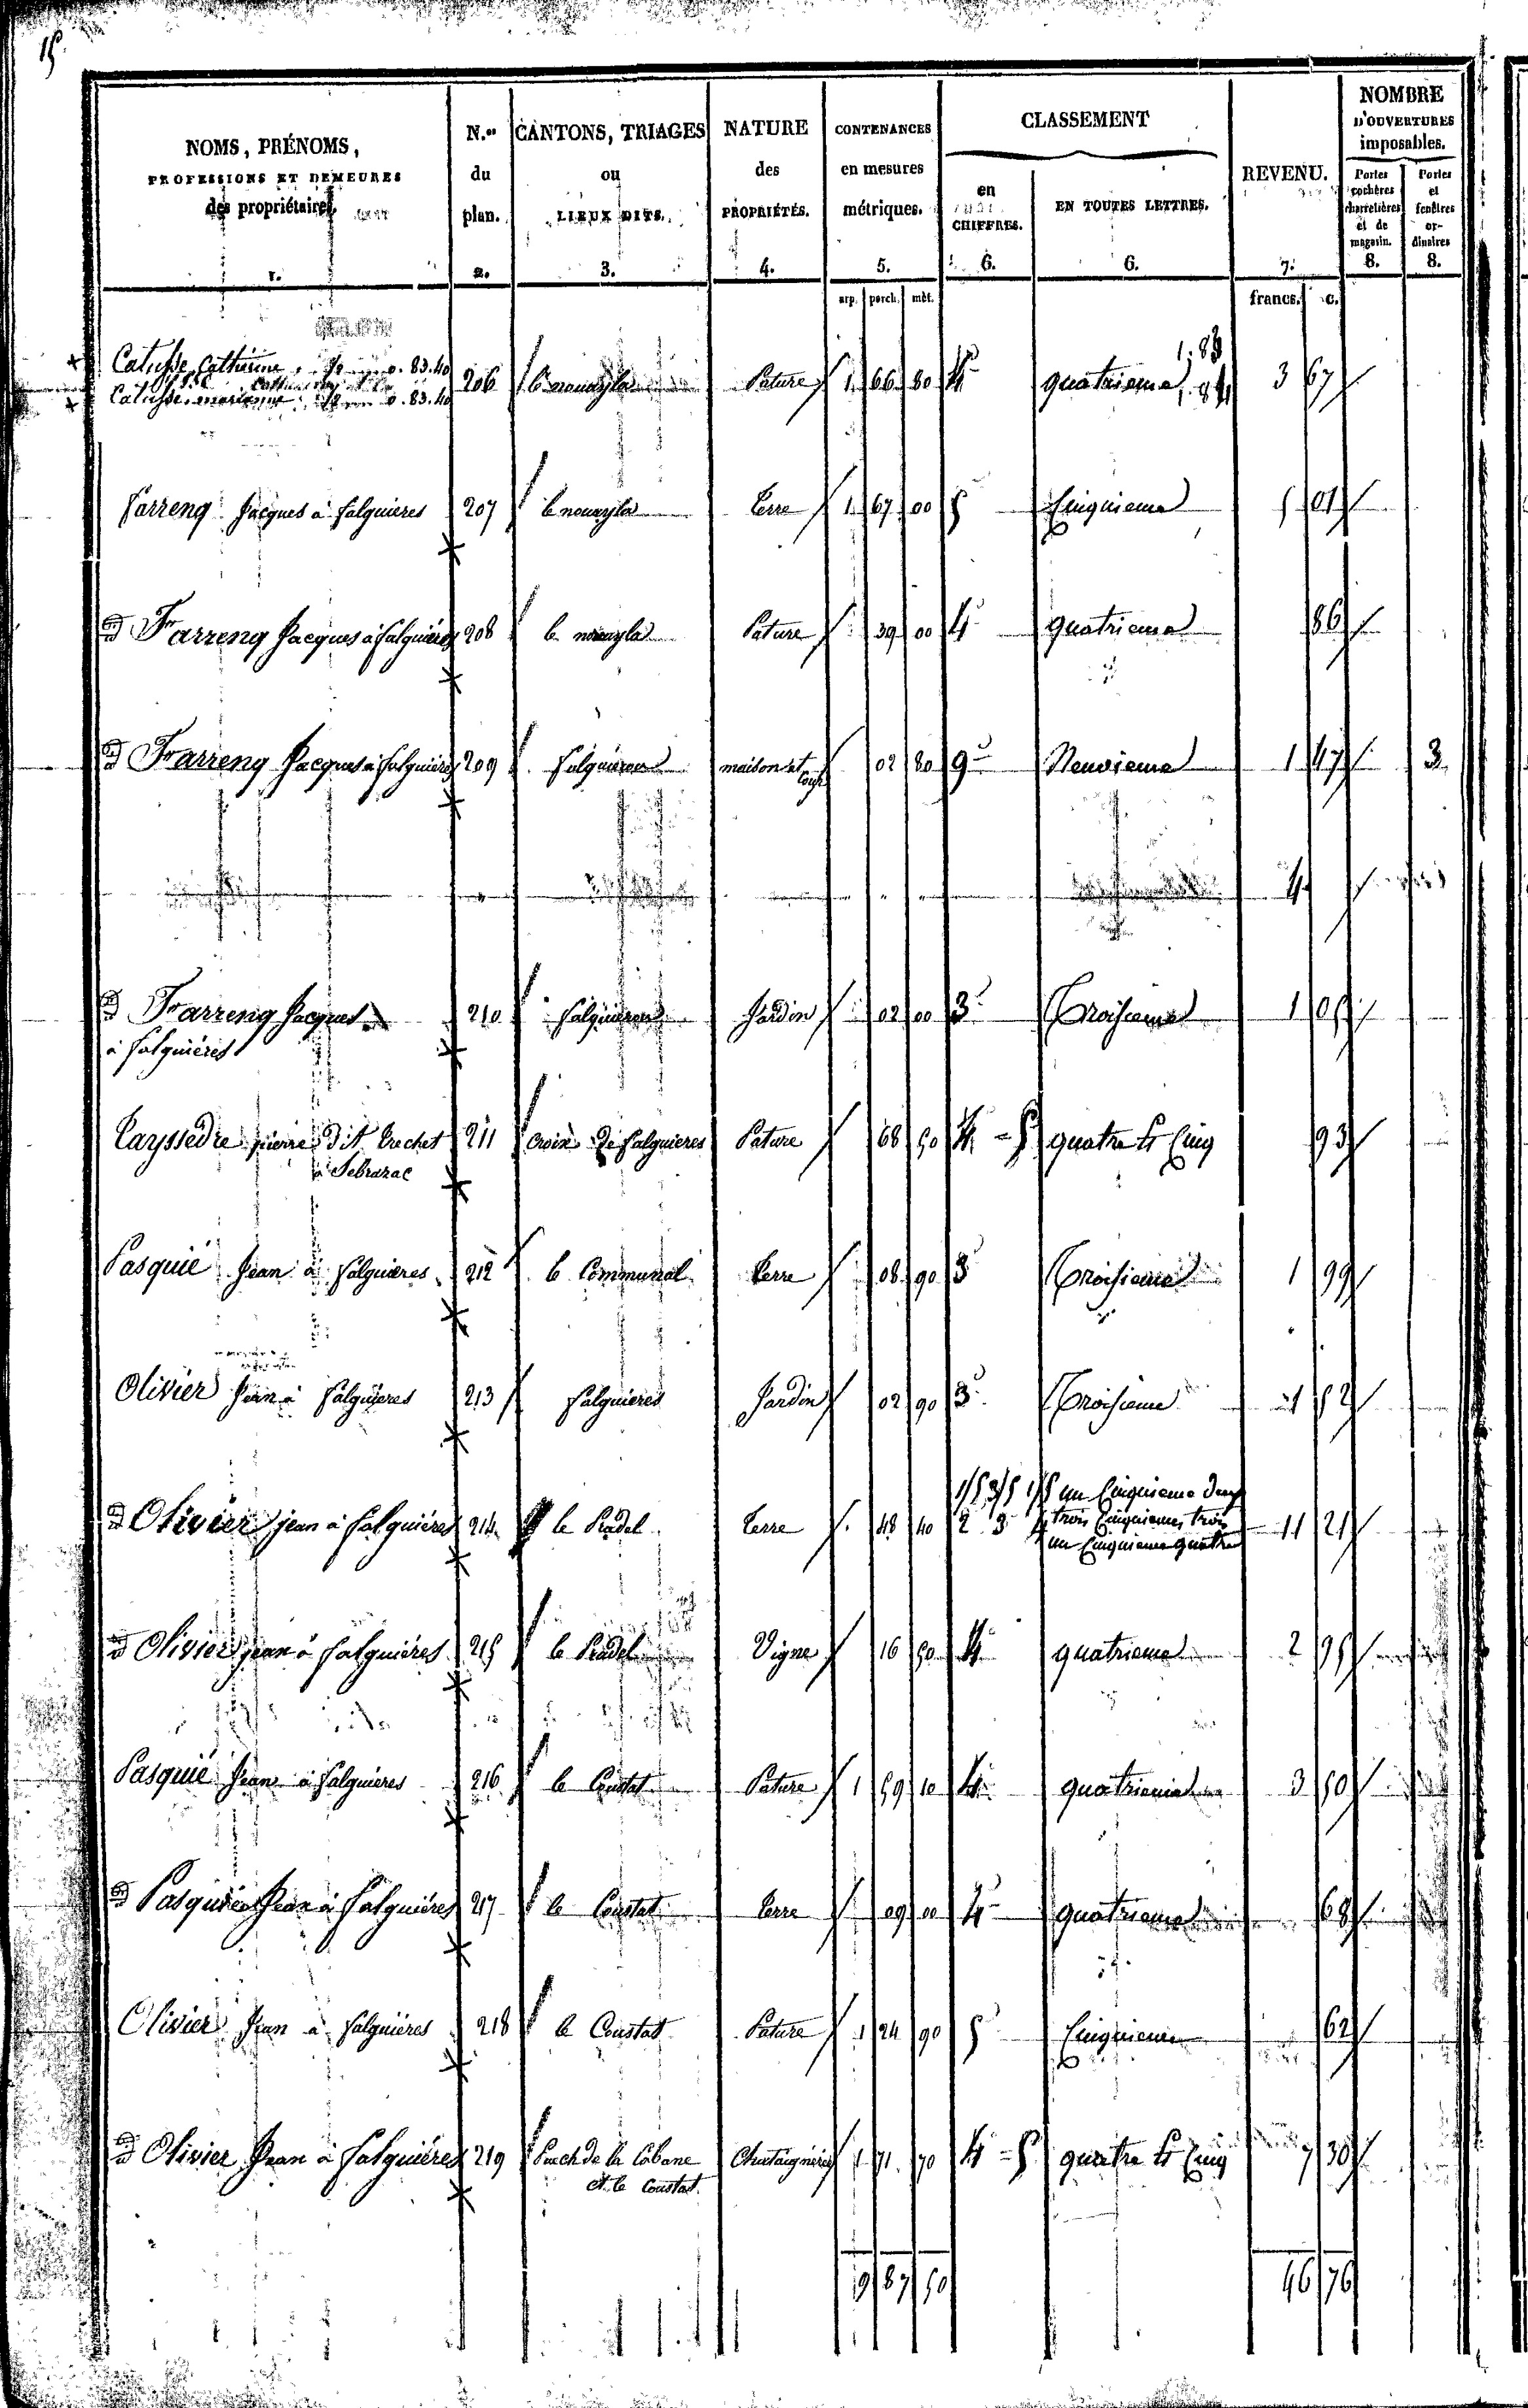 15
NOMS, PRÉNOMS, PROFESSIONS ET DEMEURES des propriétaires. 1.
N.os du plan. 2.
CANTONS, TRIAGES ou LIEUX DITS. 3.
NATURE des PROPRIÉTÉS. 4.
CONTENANCES en mesures métriques. 5.
CLASSEMENT
en CHIFFRES. 6.
EN TOUTES LETTRES. 6.
REVENU. 7.
NOMBRE D'OUVERTURES imposables.
Portes cochères charretières et de magasin. 8.
Portes et fenêtres ordinaires 8.
arp. perch. mèt. francs. c.
Catusse Catherine 0.83.40
Catusse marianne 0.83.40
206 Pature 1 66 80 4 quatrieme 1.83 3 67
Farreng Jacques à falguieres 207 Terre 1 67 00 5 Cinquieme 5 01
Farreng Jacques à falguières 208 Pature 39 00 4 quatrieme 86
Farreng Jacques à falguières 209 falguieres maison et 02 80 9 Neuvieme 1 47 3
4
Farreng Jacques à falguières 210 falguieres Jardin 02 00 3 Troisieme 1 05
Cayssedre pierre dit Crechet à Sebrazac 211 Croix de falguieres Pature 68 50 4 - 5 quatre et Cinq 93
Pasquié Jean à falguieres 212 le Communal Terre 08 90 3 Troisieme 1 99
Olivier Jean à falguieres 213 falguieres Jardin 02 90 3 Troisieme 1 52
Olivier jean à falguières 214 le Pradel Terre 48 40 1/5 3/5 1/5 2 3 4 un Cinquieme deux trois Cinquiemes trois un Cinquieme quatre 11 21
Olivier jean à falguières 215 le Pradel Vigne 16 50 4 quatrieme 2 95
Pasquié Jean à falguieres 216 le Coustat Pature 1 59 10 4 quatrieme 3 50
Pasquié Jean à falguières 217 le Coustat Terre 09 00 4 quatrieme 68
Olivier Jean à falguières 218 le Coustat Pature 1 24 90 5 Cinquieme 62
Olivier Jean à falguières 219 Puech de la Cabane et le Coustat. 1 71 70 4 - 5 quatre et Cinq 7 30
9 87 50 46 76